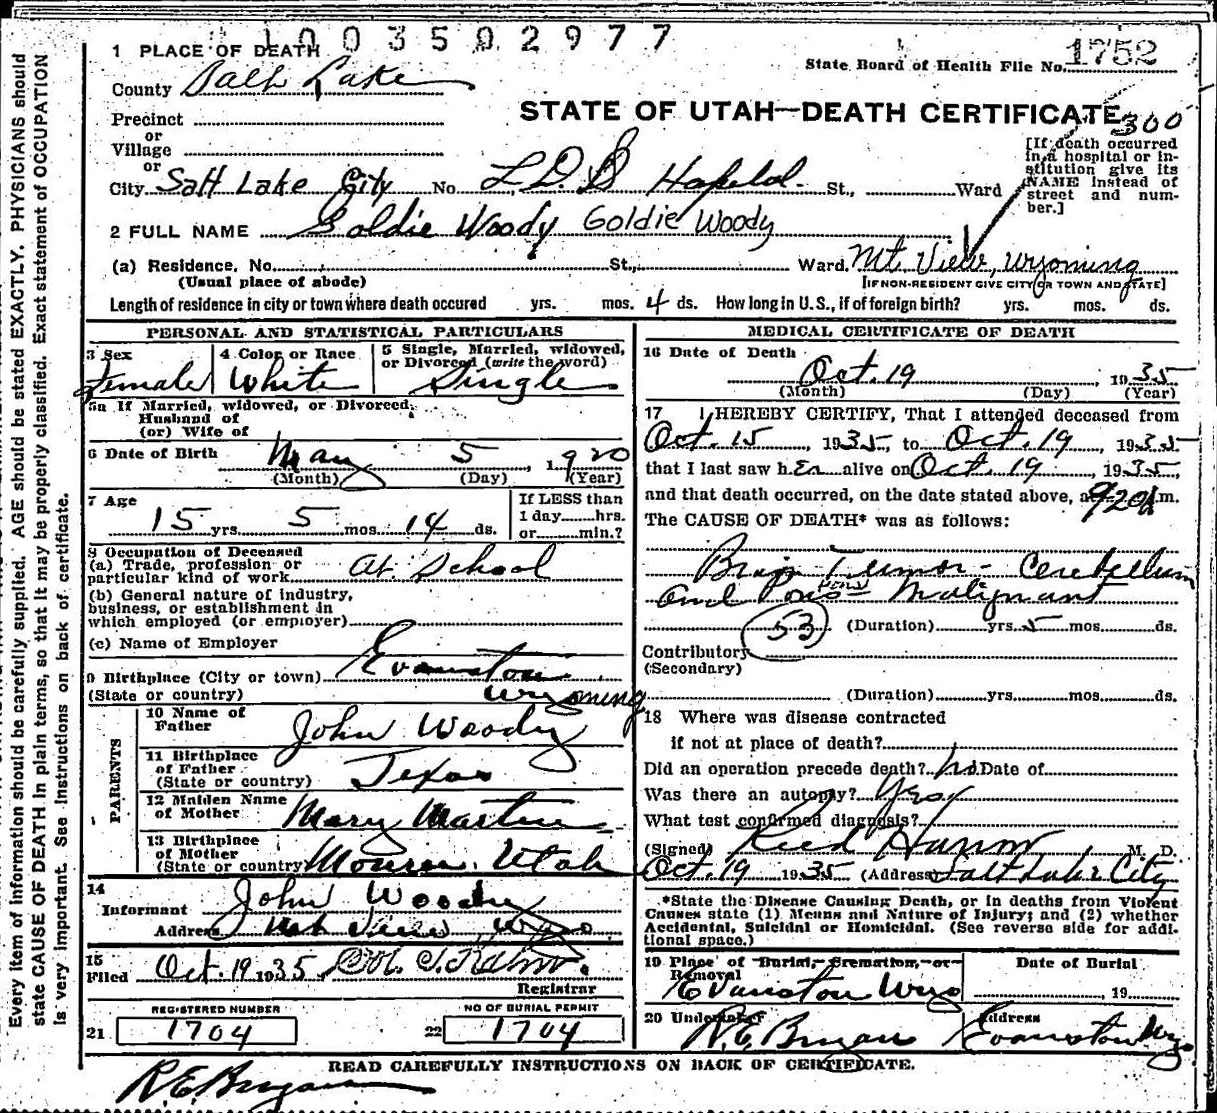 1003502977
1 PLACE OF DEATH
State Board of Health File No. 1752
County Salt Lake
STATE OF UTAH—DEATH CERTIFICATE
300
Precinct
or
Village
or
City Salt Lake City No. L.D.S Hospital. St., Ward
[If death occurred
in a hospital or in-
stitution give its
NAME instead of
street and num-
ber.]
2 FULL NAME Goldie Woody Goldie Woody
(a) Residence. No. St., Ward. Mt. View, Wyoming
(Usual place of abode)
[IF NON-RESIDENT GIVE CITY OR TOWN AND STATE]
Length of residence in city or town where death occured yrs. mos. 4 ds. How long in U.S., if of foreign birth? yrs. mos. ds.
PERSONAL AND STATISTICAL PARTICULARS
3 Sex
Female
4 Color or Race
White
5 Single, Married, widowed,
or Divorced (write the word)
Single
5a If Married, widowed, or Divorced,
Husband of
(or) Wife of
6 Date of Birth May 5, 1920
(Month) (Day) (Year)
7 Age
15 yrs. 5 mos. 14 ds.
If LESS than
1 day hrs.
or min.?
8 Occupation of Deceased
(a) Trade, profession or
particular kind of work At School
(b) General nature of industry,
business, or establishment in
which employed (or employer)
(c) Name of Employer
9 Birthplace (City or town) Evanston
(State or country) Wyoming
PARENTS
10 Name of
Father John Woody
11 Birthplace
of Father
(State or country) Texas
12 Maiden Name
of Mother Mary Martin
13 Birthplace
of Mother
(State or country) Monroe, Utah
14
Informant John Woody
Address Mt View, Wyo.
15
Filed Oct. 19 1935
Registrar
REGISTERED NUMBER
21 1704
NO OF BURIAL PERMIT
22 1704
MEDICAL CERTIFICATE OF DEATH
16 Date of Death
Oct. 19, 1935
(Month) (Day) (Year)
17 I HEREBY CERTIFY, That I attended deceased from
Oct. 15, 1935 to Oct. 19, 1935
that I last saw her alive on Oct. 19, 1935,
and that death occurred, on the date stated above, at 920 m.
The CAUSE OF DEATH* was as follows:
Brain Tumor - Cerebellum
pons
and Pons Malignant
53 (Duration) yrs. 5 mos. ds.
Contributory
(Secondary)
(Duration) yrs. mos. ds.
18 Where was disease contracted
if not at place of death?
Did an operation precede death? No. Date of
Was there an autopsy? Yes
What test confirmed diagnosis?
(Signed) Reed Harrow M. D.
Oct. 19 1935 (Address) Salt Lake City
*State the Disease Causing Death, or in deaths from Violent
Causes state (1) Means and Nature of Injury; and (2) whether
Accidental, Suicidal or Homicidal. (See reverse side for addi-
tional space.)
19 Place of Burial, Cremation, or
Removal
Evanston Wyo
Date of Burial
, 19
20 Undertaker R.E. Bryan
Address Evanston Wyo.
READ CAREFULLY INSTRUCTIONS ON BACK OF CERTIFICATE.
R.E. Bryan
Every item of information should be carefully supplied. AGE should be stated EXACTLY. PHYSICIANS should
state CAUSE OF DEATH in plain terms, so that it may be properly classified. Exact statement of OCCUPATION
is very important. See instructions on back of certificate.